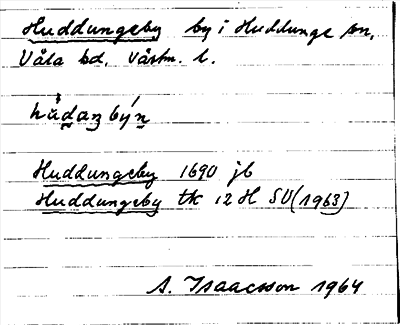 Huddungeby by i Huddunge sn,
Våla hd, Västm. l.
hùdaŋbýn
Huddungeby 1690 jb
Huddungeby tk 12 H SV (1963)
A. Isaacsson 1964